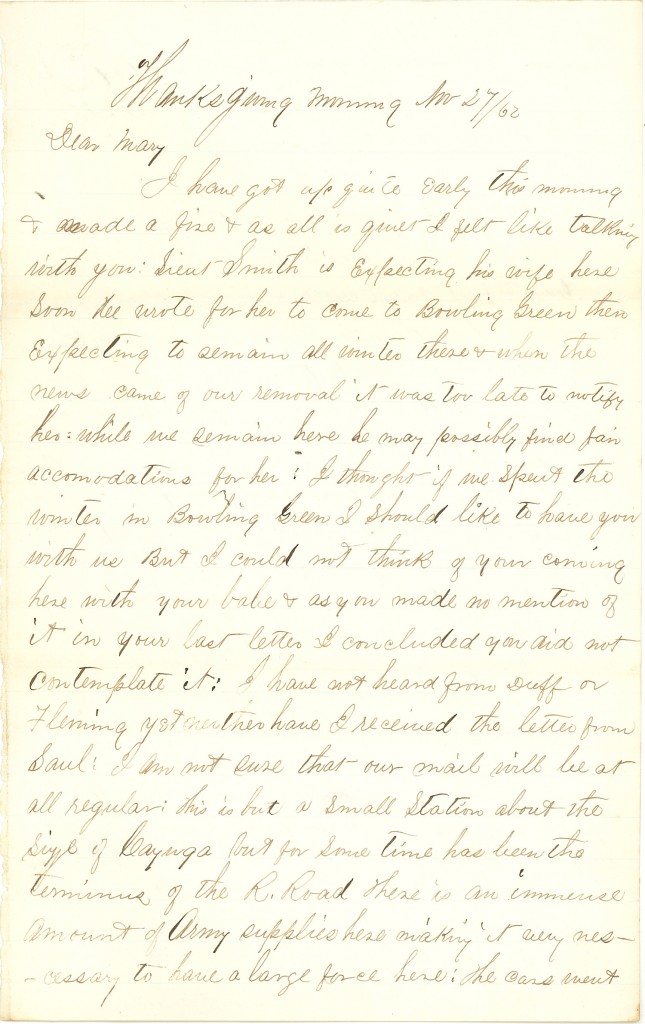 Thanksgiving morning Nov 27/62
Dear Mary
I have got up quite Early this morning
& made a fire & as all is quiet I felt like talking
with you: Lieut Smith is Expecting his wife here
Soon Hee wrote for her to come to Bowling Green then
Expecting to remain all winter there & when the
news came of our removal it was too late to notify
her: while we remain here he may possibly find fair
accomodations for her: I thought if we Spent the
winter in Bowling Green I Should like to have you
with us But I could not think of your coming
here with your babe & as you made no mention of
it in your last letter I concluded you did not
Contemplate it: I have not heard from Duff or
Fleming yet neither have I received the letter from
Saul: I am not sure that our mail will be at
all regular: This is but a Small Station about the
Size of Cayuga but for Some time has been the
terminus of the R. Road There is an immense
Amount of Army supplies here making it very nes-
-cessary to have a large force here: The cars went